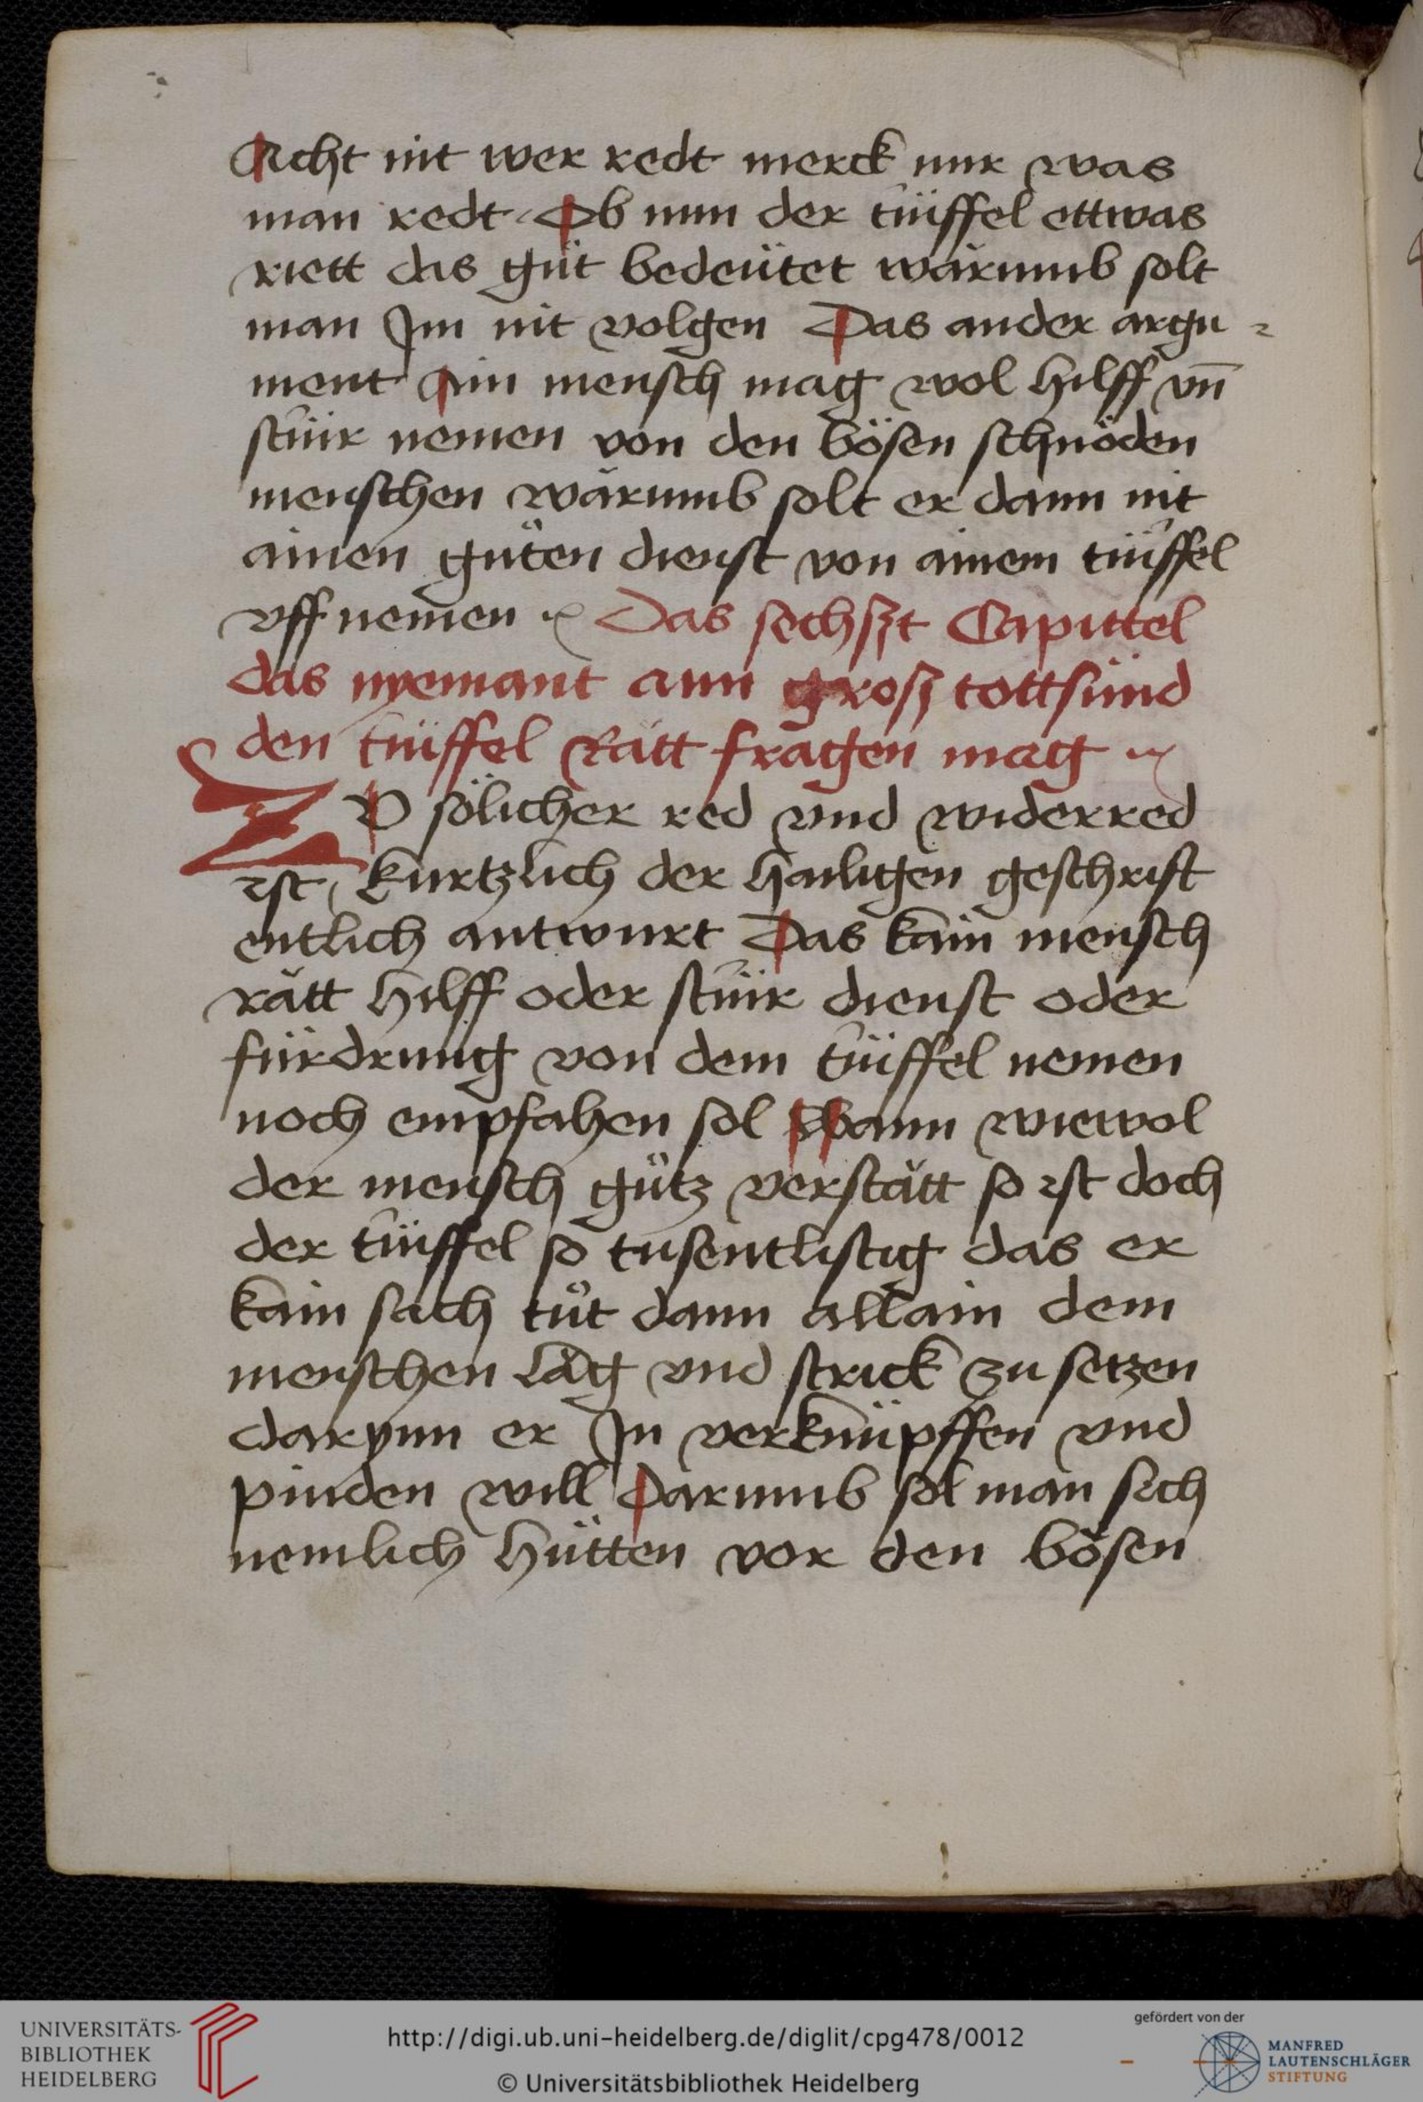 Acht nit wer redt merck nur was
man redt Ob nun der tüffel ettwas
riett das gůt bedeütet wärumb solt
man Im nit volgen Das ander argu-
ment Ain mensch mag wol hilff vn̄
stüir nemen von den bösen schnöden
menschen wǎrumb solt er dann nit
ainen gůten dienst von ainem tüffel
vff nemen Das sechszt Capittel
das nyemant ann grosz tottsünd
den tüffel Rätt fragen mag
ZV sölicher red vnd widerred
ist kurtzlich der hailigen geschrift
entlich antwurt Das kain mensch
rǎtt hilff oder stüir dienst oder
fürdrung von dem tüffel nemen
noch empfahen sol Wann wiewol
der mensch gůtz verstǎtt so ist doch
der tüffel so tusentlistig das er
kain sach tůt dann allain dem
menschen läg vnd strick zu setzen
darynn er In verknüpffen vnd
pinden will Darumb sol man sich
nemlich hütten vor den bösen
UNIVERSITÄTS-
BIBLIOTHEK
HEIDELBERG
http://digi.ub.uni-heidelberg.de/diglit/cpg478/0012
© Universitätsbibliothek Heidelberg
gefördert von der
MANFRED
LAUTENSCHLÄGER
STIFTUNG